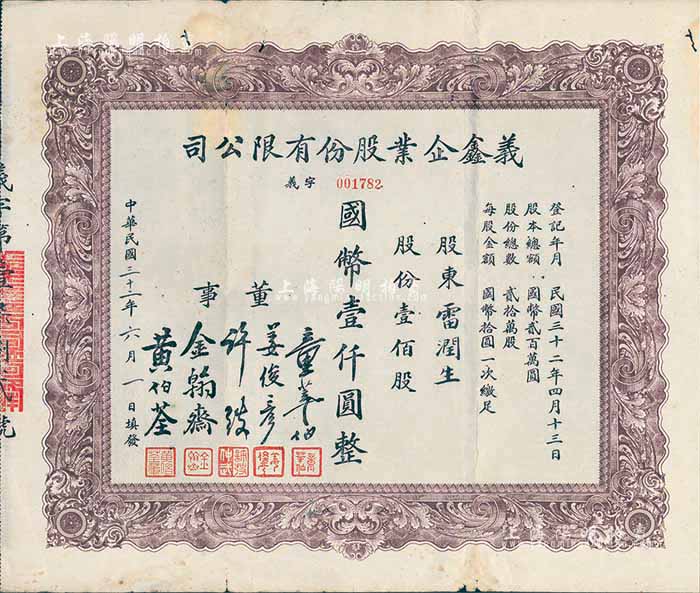 義鑫企業股份有限公司
義字 001782
登記年月 民國三十二年四月十三日
股本總額：國幣貳百萬圓
股份總數 貳拾萬股
每股金額 國幣拾圓一次繳足
股東 雷潤生
股份壹佰股
國幣壹仟圓整
董事
童莘伯
姜俊彥
許
金翰齋
黃伯荃
中華民國三十二年六月一日填發
義字第
號
上海陽明拍賣